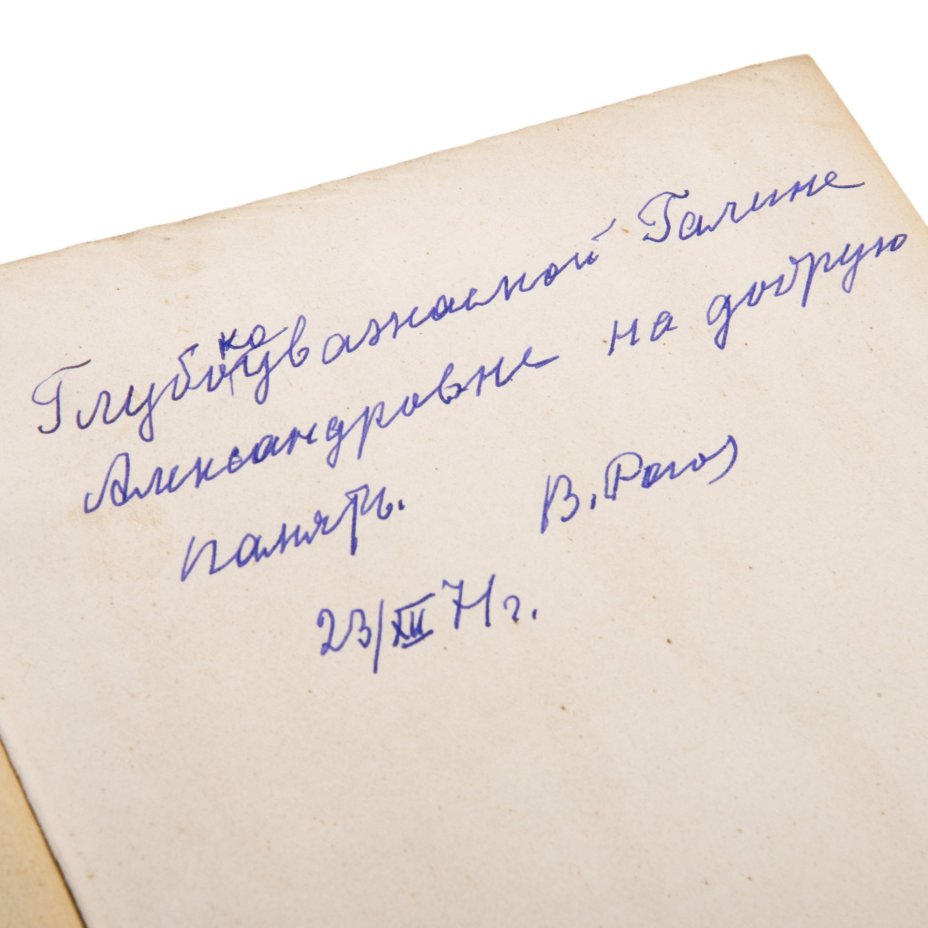 Глубокоуважаемой Галине
Александровне на добрую
память. В. Рогов
23/XII 71г.